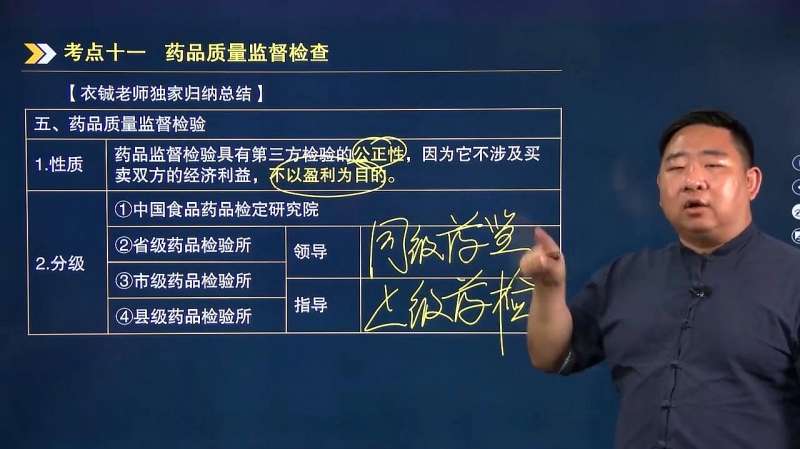 考点十一 药品质量监督检查
【衣铖老师独家归纳总结】
五、药品质量监督检验
1.性质
药品监督检验具有第三方检验的公正性，因为它不涉及买
卖双方的经济利益，不以盈利为目的。
2.分级
①中国食品药品检定研究院
②省级药品检验所
③市级药品检验所
④县级药品检验所
领导
同级药监
指导
上级药检